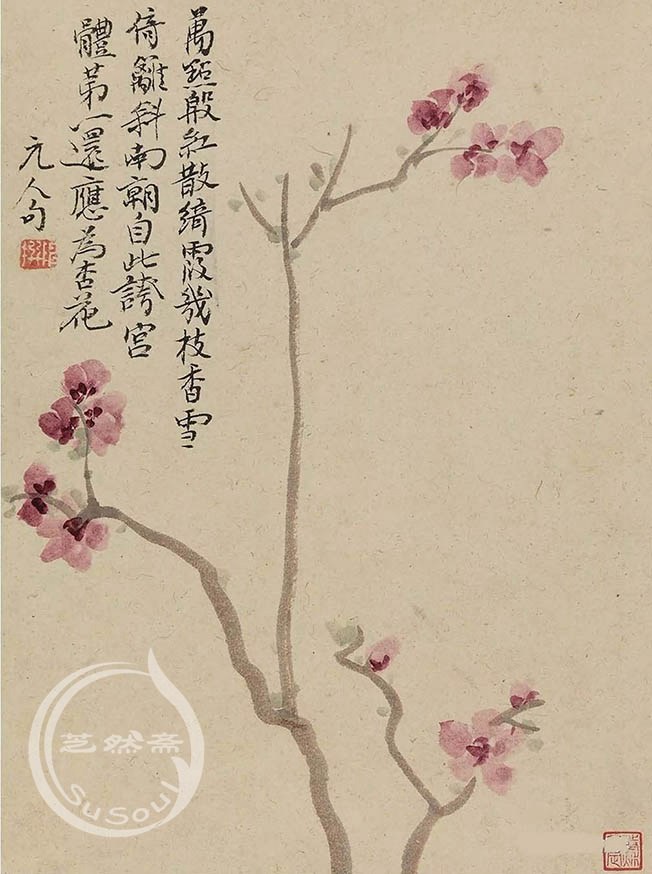 萬點殷紅散綺霞幾枝香雪
倚籬斜南朝自此誇宮
體第一還應為杏花
元人句
芝然斋
SuSoul